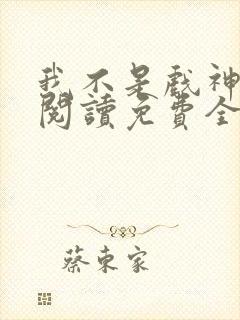 我不是戲神
閱讀免費全
蔡東家